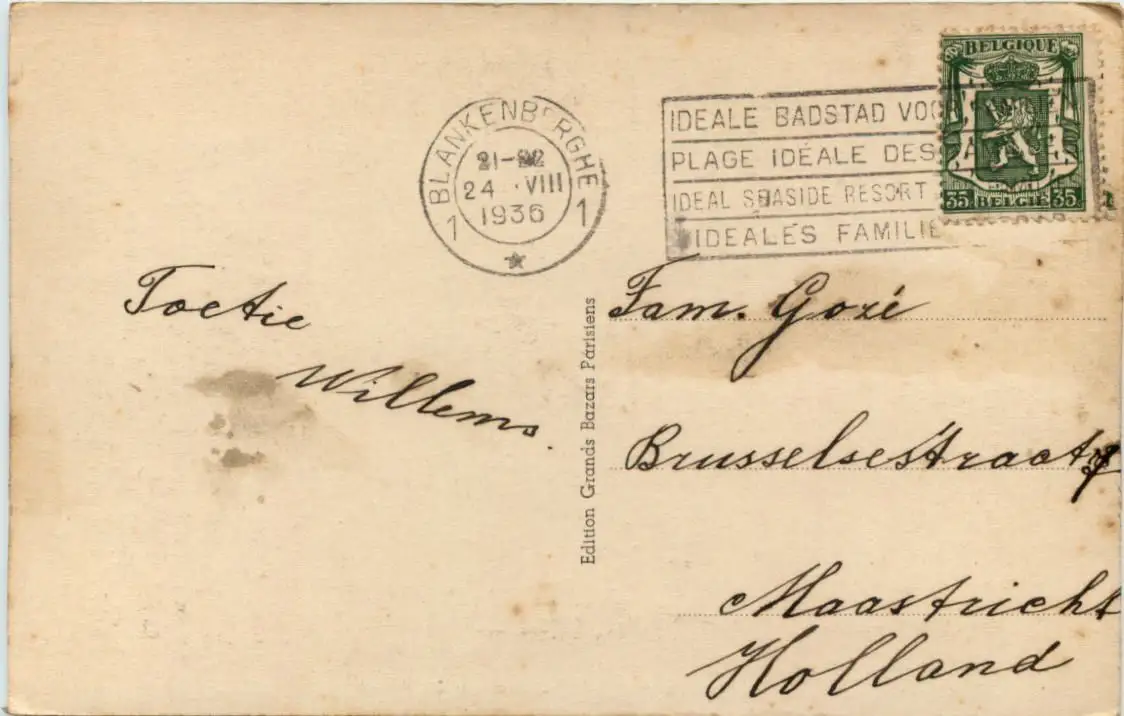 BELGIQUE
35 BELGIË 35
1 BLANKENBERGHE 1
21-22
24 VIII
1936
IDEALE BADSTAD VOO
PLAGE IDÉALE DES
IDEAL SEASIDE RESORT
IDEALES FAMILIE
Toetie
Willems.
Edition Grands Bazars Parisiens
Fam. Gozé
Brusselsestraat
Maastricht
Holland